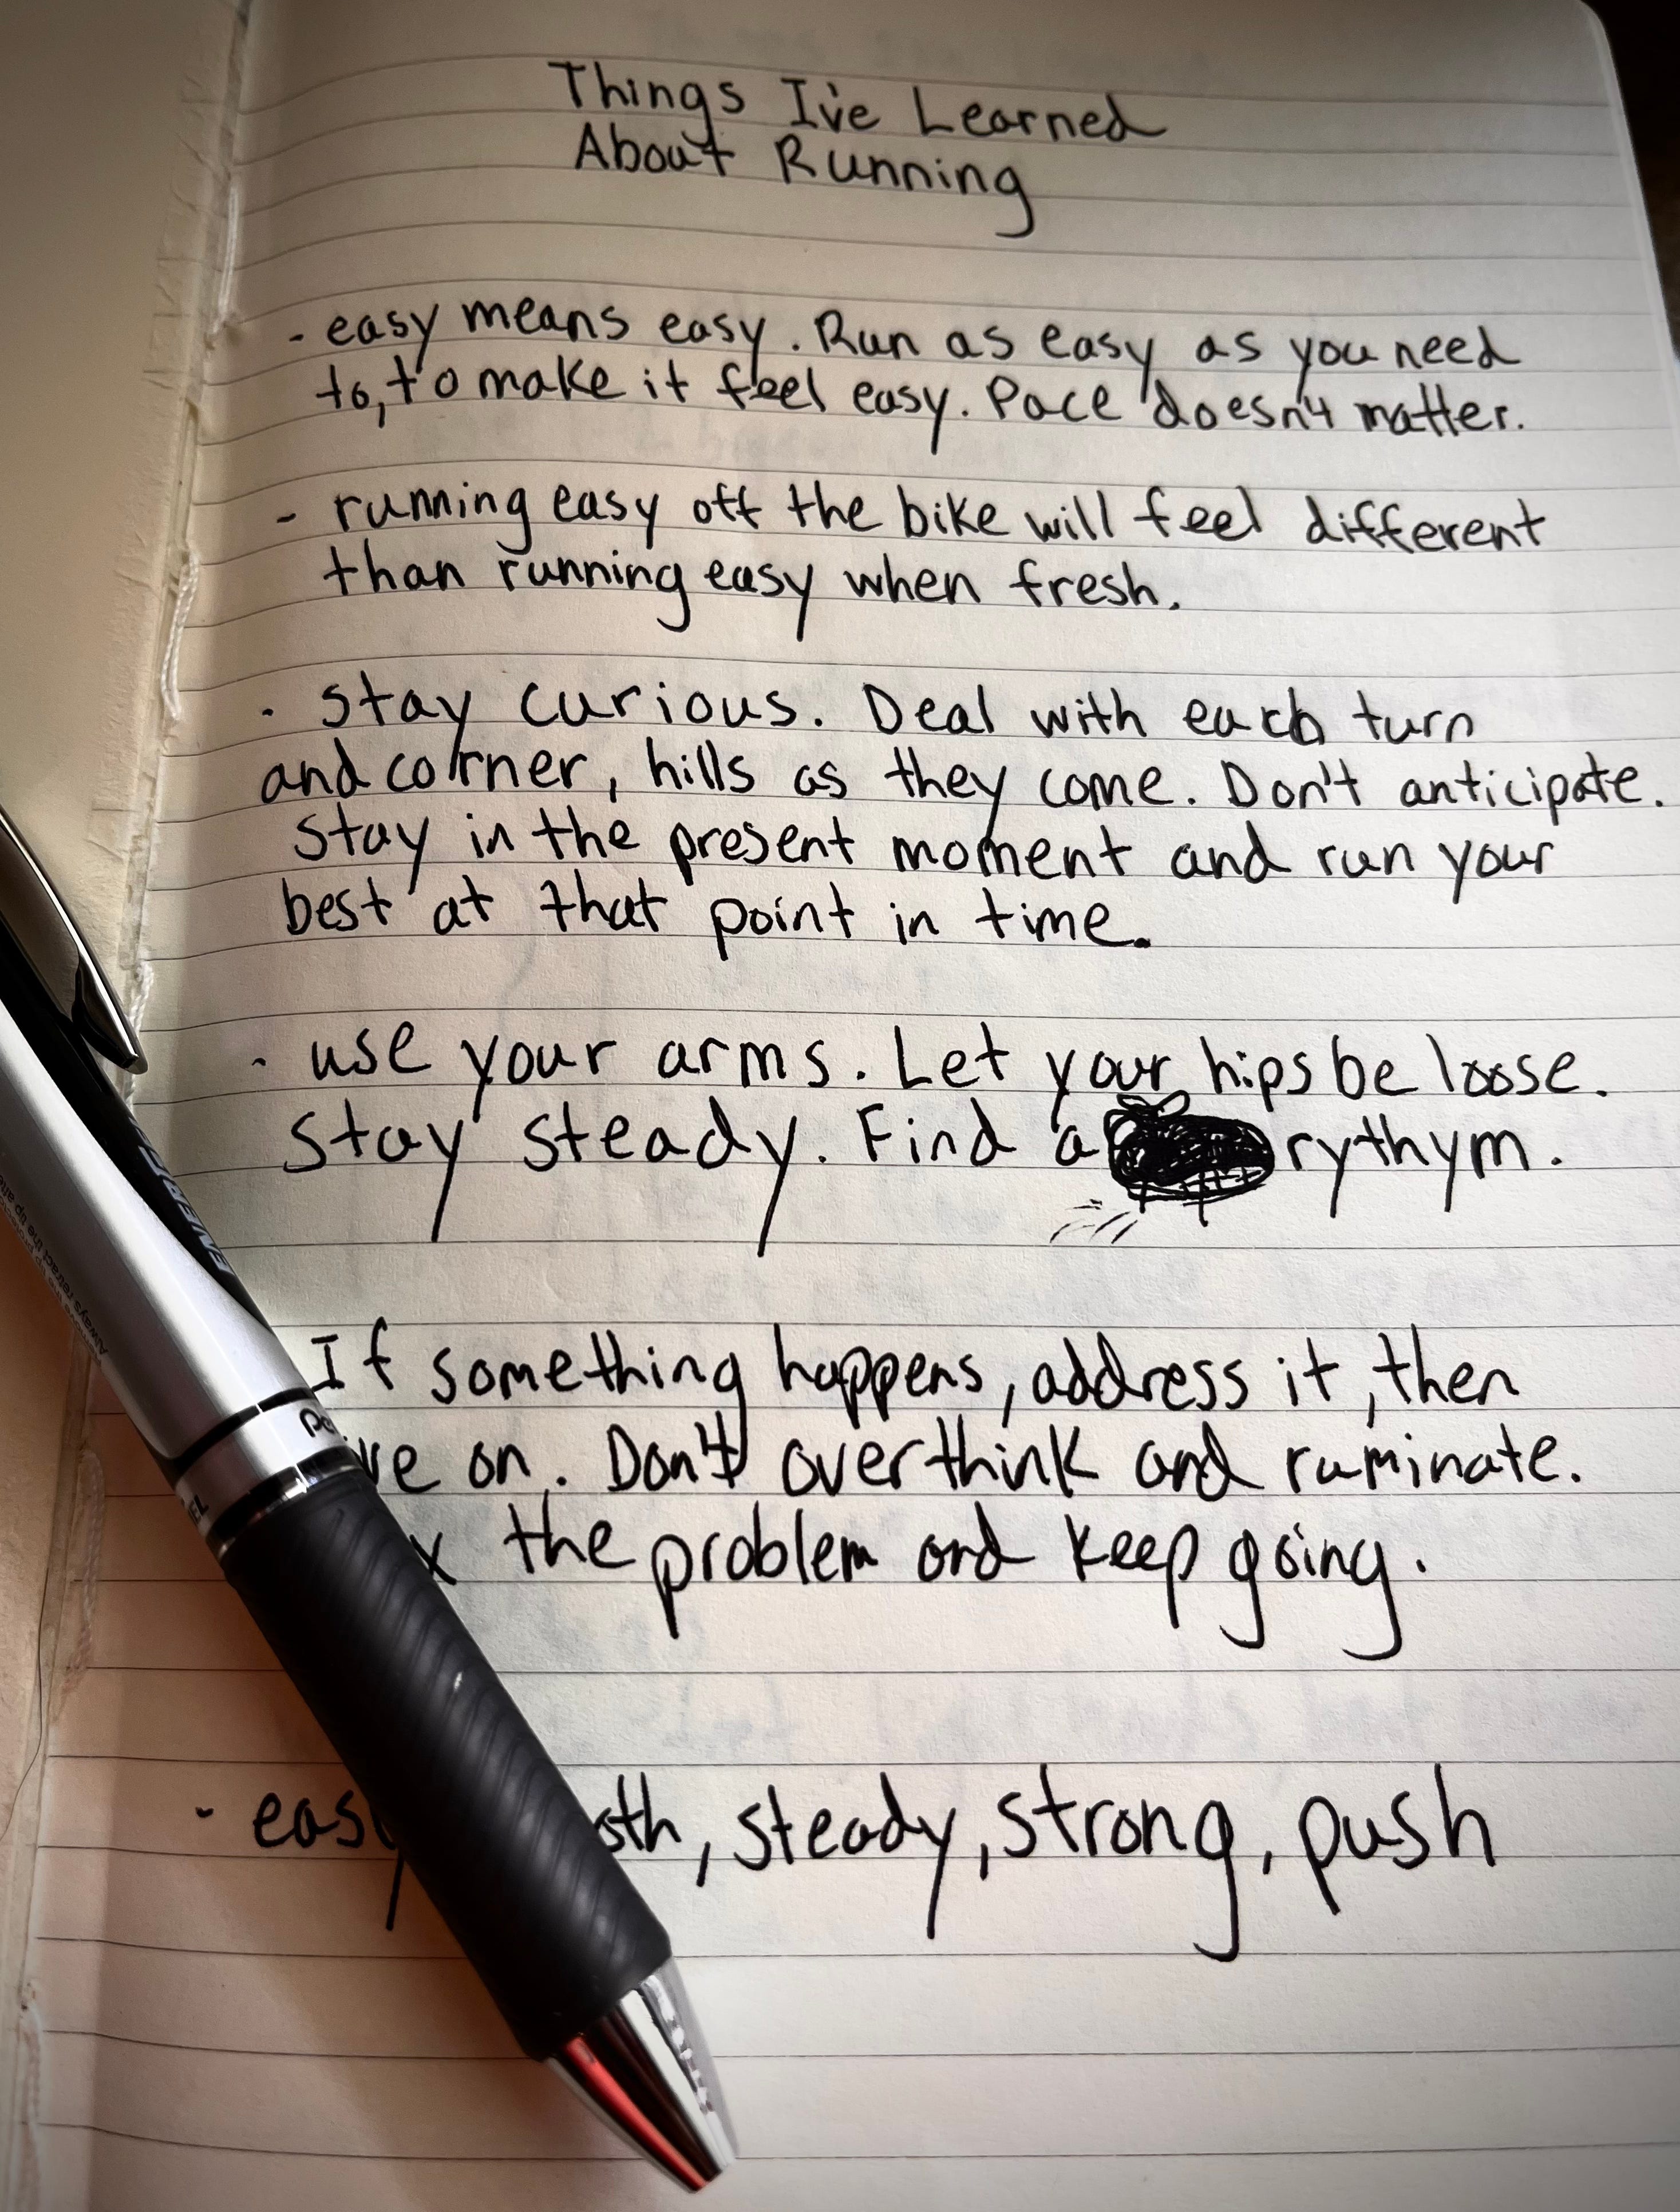 Things I've Learned
About Running
- easy means easy. Run as easy as you need
to, to make it feel easy. Pace doesn't matter.
- running easy off the bike will feel different
than running easy when fresh.
- stay curious. Deal with each turn
and corner, hills as they come. Don't anticipate.
Stay in the present moment and run your
best at that point in time.
- use your arms. Let your hips be loose.
Stay steady. Find a rythym.
If something happens, address it, then
on. Don't overthink and ruminate.
the problem and keep going.
- easy, steady, strong, push